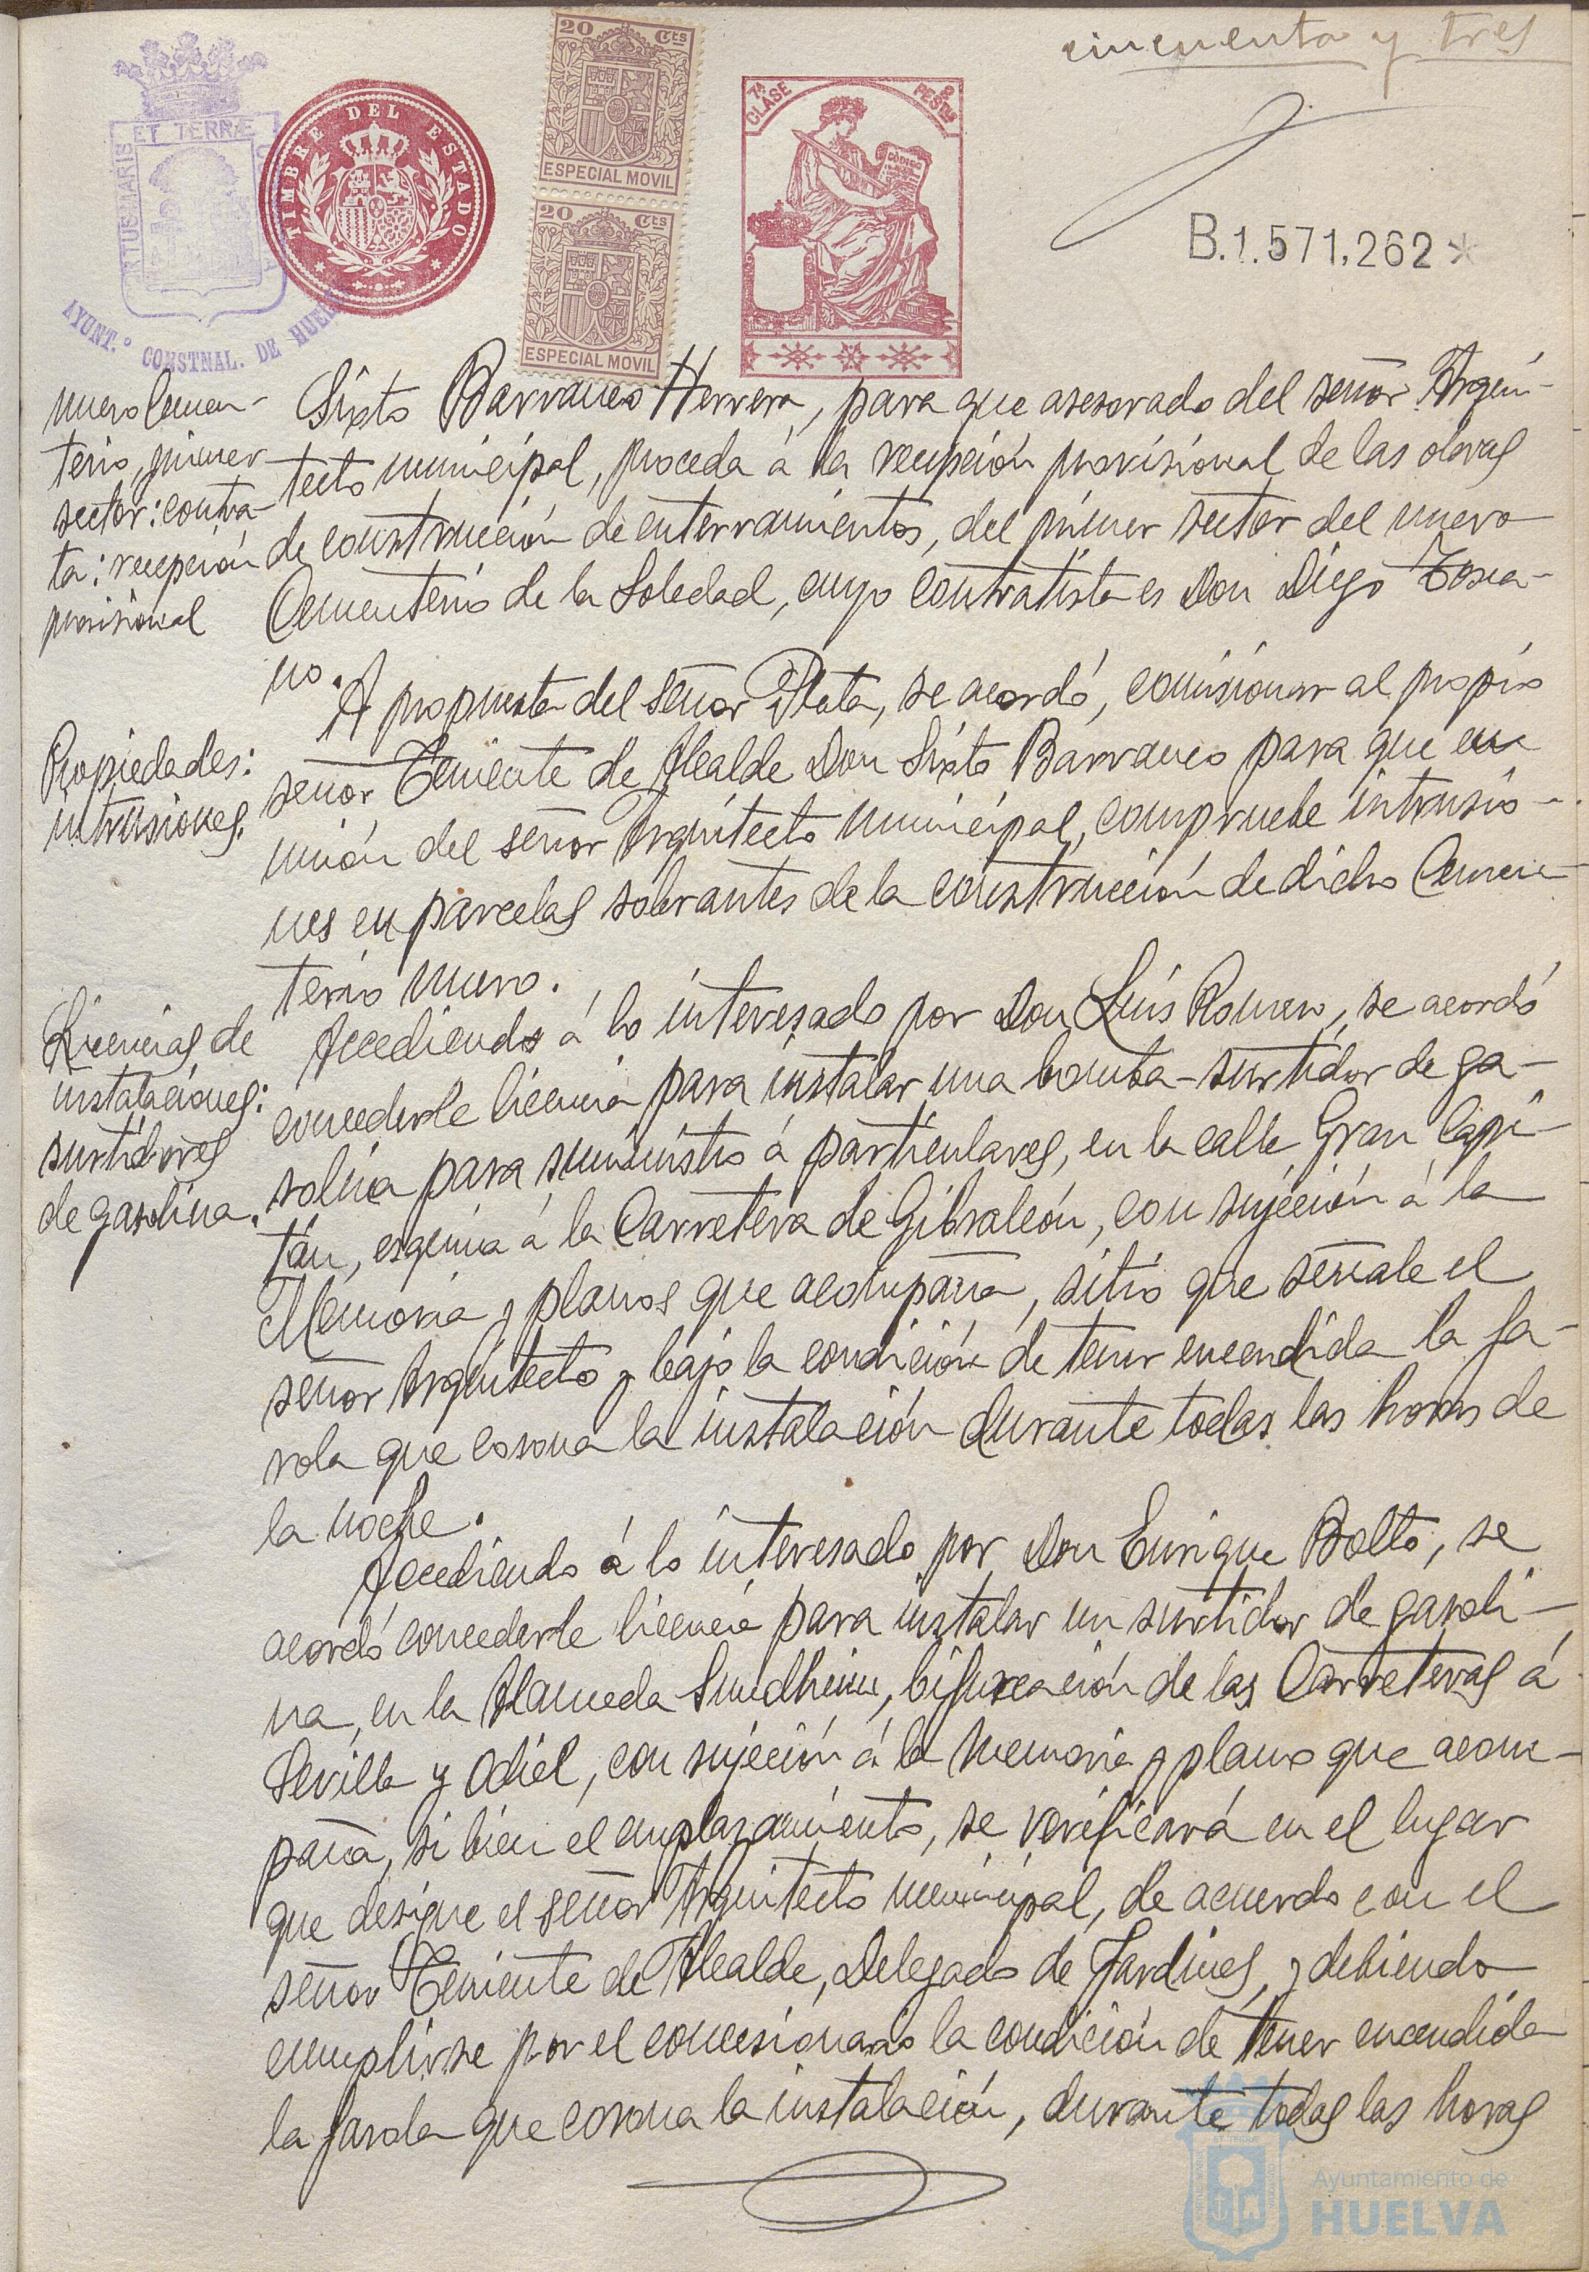 cincuenta y tres
PORTUS MARIS ET TERRÆ CUSTODIA
AYUNT.º CONSTNAL. DE HUELVA
TIMBRE DEL ESTADO
20 Cts
ESPECIAL MOVIL
20 Cts
ESPECIAL MOVIL
7ª CLASE
8 PESTAS
CÓDIGO
B.1.571.262*
nuevo Cemen-
terio, primer
sector: contra-
ta: recepción
provisional
Sixto Barranco Herrera, para que asesorado del señor Arqui-
tecto municipal, proceda á la recepción provisional de las obras
de construcción de enterramientos, del primer sector del nuevo
Cementerio de la Soledad, cuyo contratista es Don Diego Tosca-
no.
Propiedades:
intrusiones.
A propuesta del señor Plata, se acordó, comisionar al propio
señor Teniente de Alcalde Don Sixto Barranco para que en
unión del señor Arquitecto municipal, compruebe intrusio-
nes en parcelas sobrantes de la construcción de dicho Cemen-
terio nuevo.
Licencias de
instalaciones:
surtidores
de gasolina.
Accediendo á lo interesado por Don Luís Romero, se acordó
concederle licencia para instalar una bomba-surtidor de ga-
solina para suministro á particulares, en la calle Gran Capi-
tán, esquina á la Carretera de Gibraleón, con sujeción á la
Memoria y planos que acompaña, sitio que señale el
señor Arquitecto y bajo la condición de tener encendida la fa-
rola que corona la instalación durante todas las horas de
la noche.
Accediendo á lo interesado por Don Enrique Bolto, se
acordó concederle licencia para instalar un surtidor de gasoli-
na, en la Alameda Sundheim, bifurcación de las Carreteras á
Sevilla y Odiel, con sujeción á la memoria y plano que acom-
paña, si bien el emplazamiento, se verificará en el lugar
que designe el señor Arquitecto municipal, de acuerdo con el
señor Teniente de Alcalde, Delegado de Jardines, y debiendo
cumplirse por el concesionario la condición de tener encendida
la farola que corona la instalación, durante todas las horas
Ayuntamiento de
HUELVA